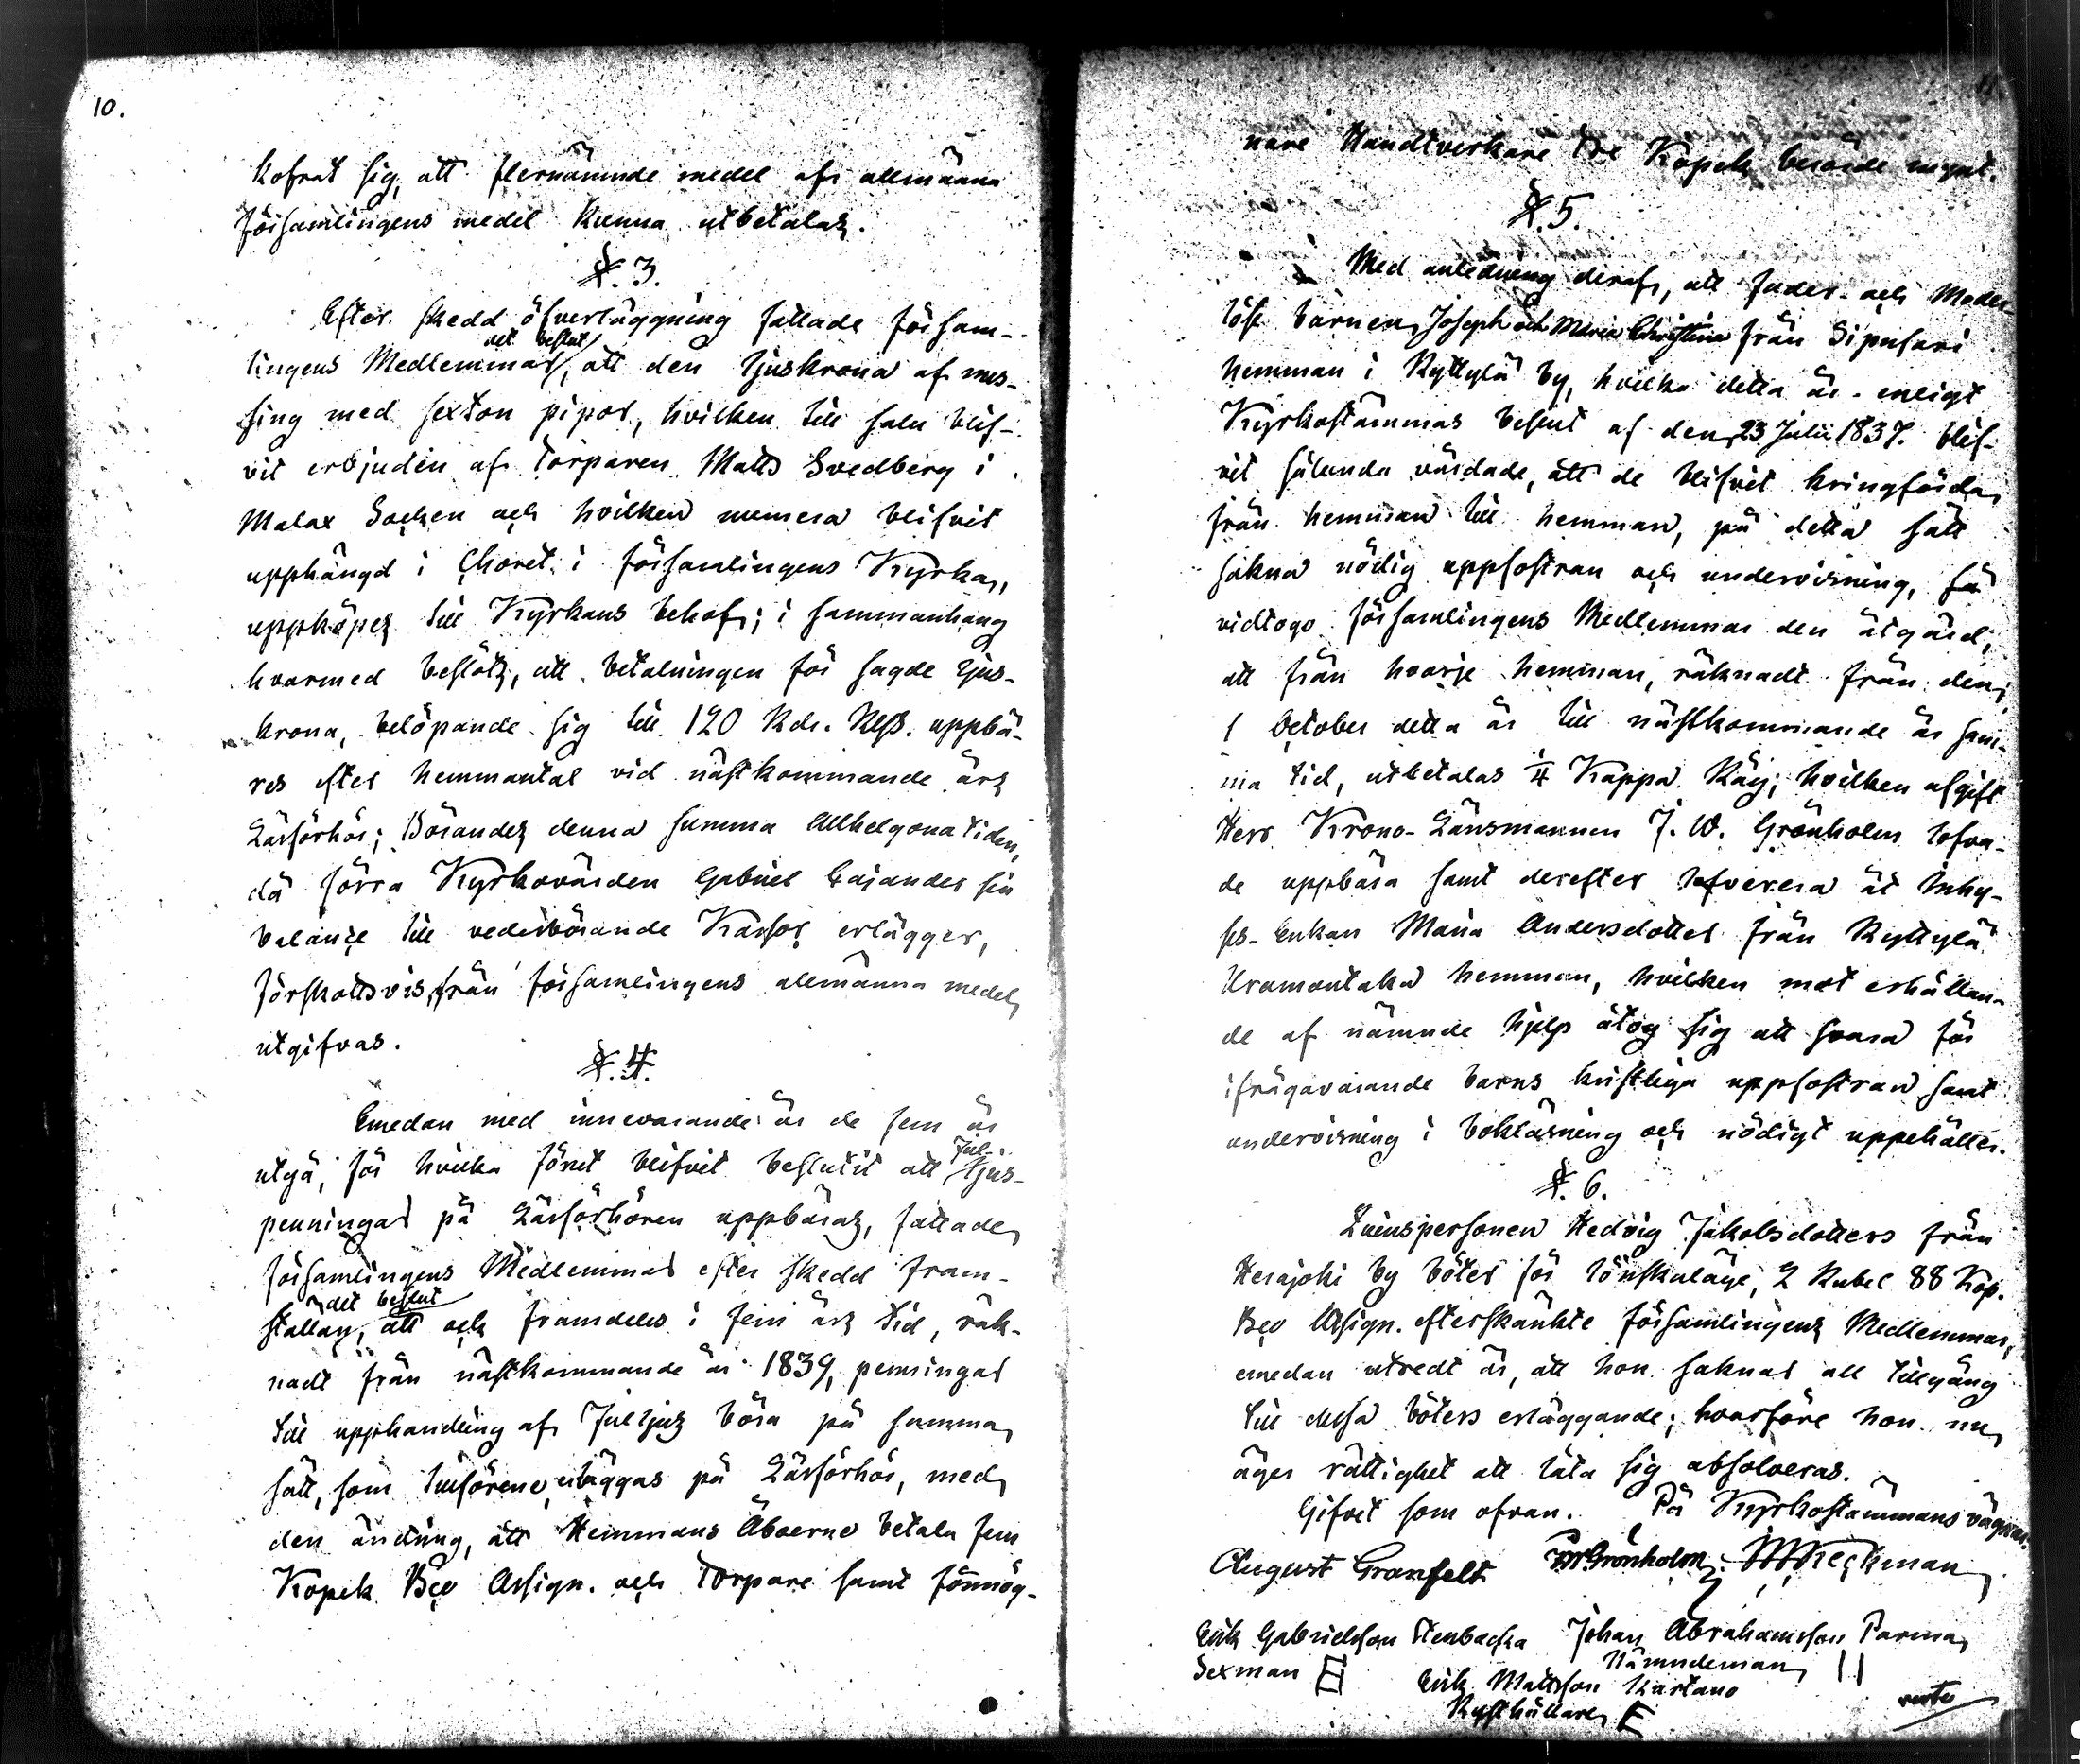 10.
kofrat sig, att flernämnde medel af allmänna
församlingens medel kunna utbetalas.
§. 3.
Efter skedd öfverläggning fattade försam-
det beslut
lingens Medlemmar, att den ljuskrona af mes-
sing med sexton pipor, hvilken till salu blif-
vit erbjuden af Torparen Matts Svedberg i
Malax Socken och hvilken numera blifvit
upphängd i Choret i församlingens Kyrka,
uppköpes till Kyrkans behof; i sammanhang
hvarmed beslöts, att betalningen för sagde ljus-
krona, belöpande sig till 120 Rdr. Rgs. uppbä-
res efter hemmantal vid nästkommande års
Läsförhör; Börandes denna summa Allhelgona tiden,
då förra Kyrkovärden Gabriel Cajander sin
balance till vederbörande Kassor erlägger,
förskottsvis från församlingens allmänna medel
utgifvas.
§. 4.
Emedan med innevarande år de fem år
Jul-
utgå, för hvilka förut blifvit beslutit att ljus-
penningar på Läsförhören uppbäras, fattade
församlingens Medlemmar efter skedd fram-
det beslut
ställan, att och framdeles i fem års tid, räk-
nadt från nästkommande år 1839, penningar
till upphandling af Julljus böra på samma
sätt, som tillförene, erläggas på Läsförhör, med
den ändring, att Hemmans Åboerne betala fem
Kopek Bco Assign. och Torpare samt förmög-
nare Handtverkare tre Kopek berörde mynt.
§. 5.
Med anledning deraf, att fader- och Moder-
lösa barnen Joseph och Maria Christina från Sipusari
hemman i Ryttylä by, hvilka detta år enligt
Kyrkostämmas beslut af den 23 Julii 1837. blif-
vit sålunda vårdade, att de blifvit kringförda
från hemman till hemman, på detta sätt
sakna nödig uppfostran och undervisning, så
vidtogo församlingens Medlemmar den åtgärd,
att från hvarje hemman, räknadt från den
1 October detta år till nästkommande år sam-
ma tid, utbetalas 1/4 Kappa Råg; hvilken afgift
Herr Krono-Länsmannen J. W. Grönholm lofva-
de uppbära samt derefter lefverera åt Inhy-
ses-Enkan Maria Andersdotter från Ryttylä
hemman, hvilken mot erhållan-
de af nämnde hjelp åtog sig att svara för
ifrågavarande barns kristliga uppfostran samt
undervisning i bokläsning och nödigt uppehälle.
§. 6.
Qvinspersonen Hedvig Jakobsdotters från
Herajoki by böter för lönskaläge, 2 Rubel 88 Kop.
Bco Assign. efterskänkte församlingens Medlemmar,
emedan utredt är, att hon saknar all tillgång
till dessa böters erläggande; hvarföre hon nu
äger rättighet att låta sig absolveras.
Gifvet som ofvan. På Kyrkostämmans vägnar.
August Granfelt JW Grönholm
Erik Gabrielsson Stenbacka Johan Abrahamsson Parma
Sexman Nämndeman
Erik Mattsson Kartano
Rusthållare